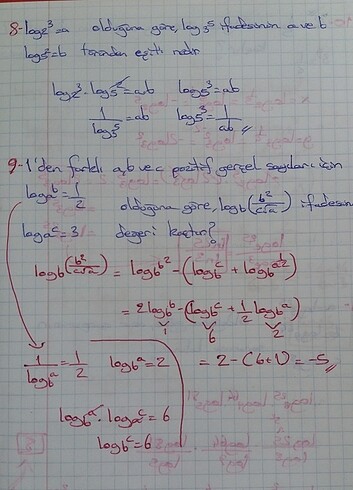 8-log₂3=a olduğuna göre, log₃5 ifadesinin a ve b
log₅2=b türünden eşiti nedir
log₂3 . log₅2=a.b log₅3=ab
1/log₃5=ab log₃5=1/ab //
9-1'den farklı a,b ve c pozitif gerçel sayıları için
logₐb=1/2 olduğuna göre, log_b(b²/c√a) ifadesinin
logₐc=3 değeri kaçtır?
log_b(b²/c√a) = log_b b² - (log_b c + log_b a^(1/2))
= 2log_b b - (log_b c + 1/2 log_b a)
1 6 2
1/log_b a = 1/2 log_b a = 2 = 2-(6+1) = -5 //
log_b a . logₐc = 6
log_b c = 6